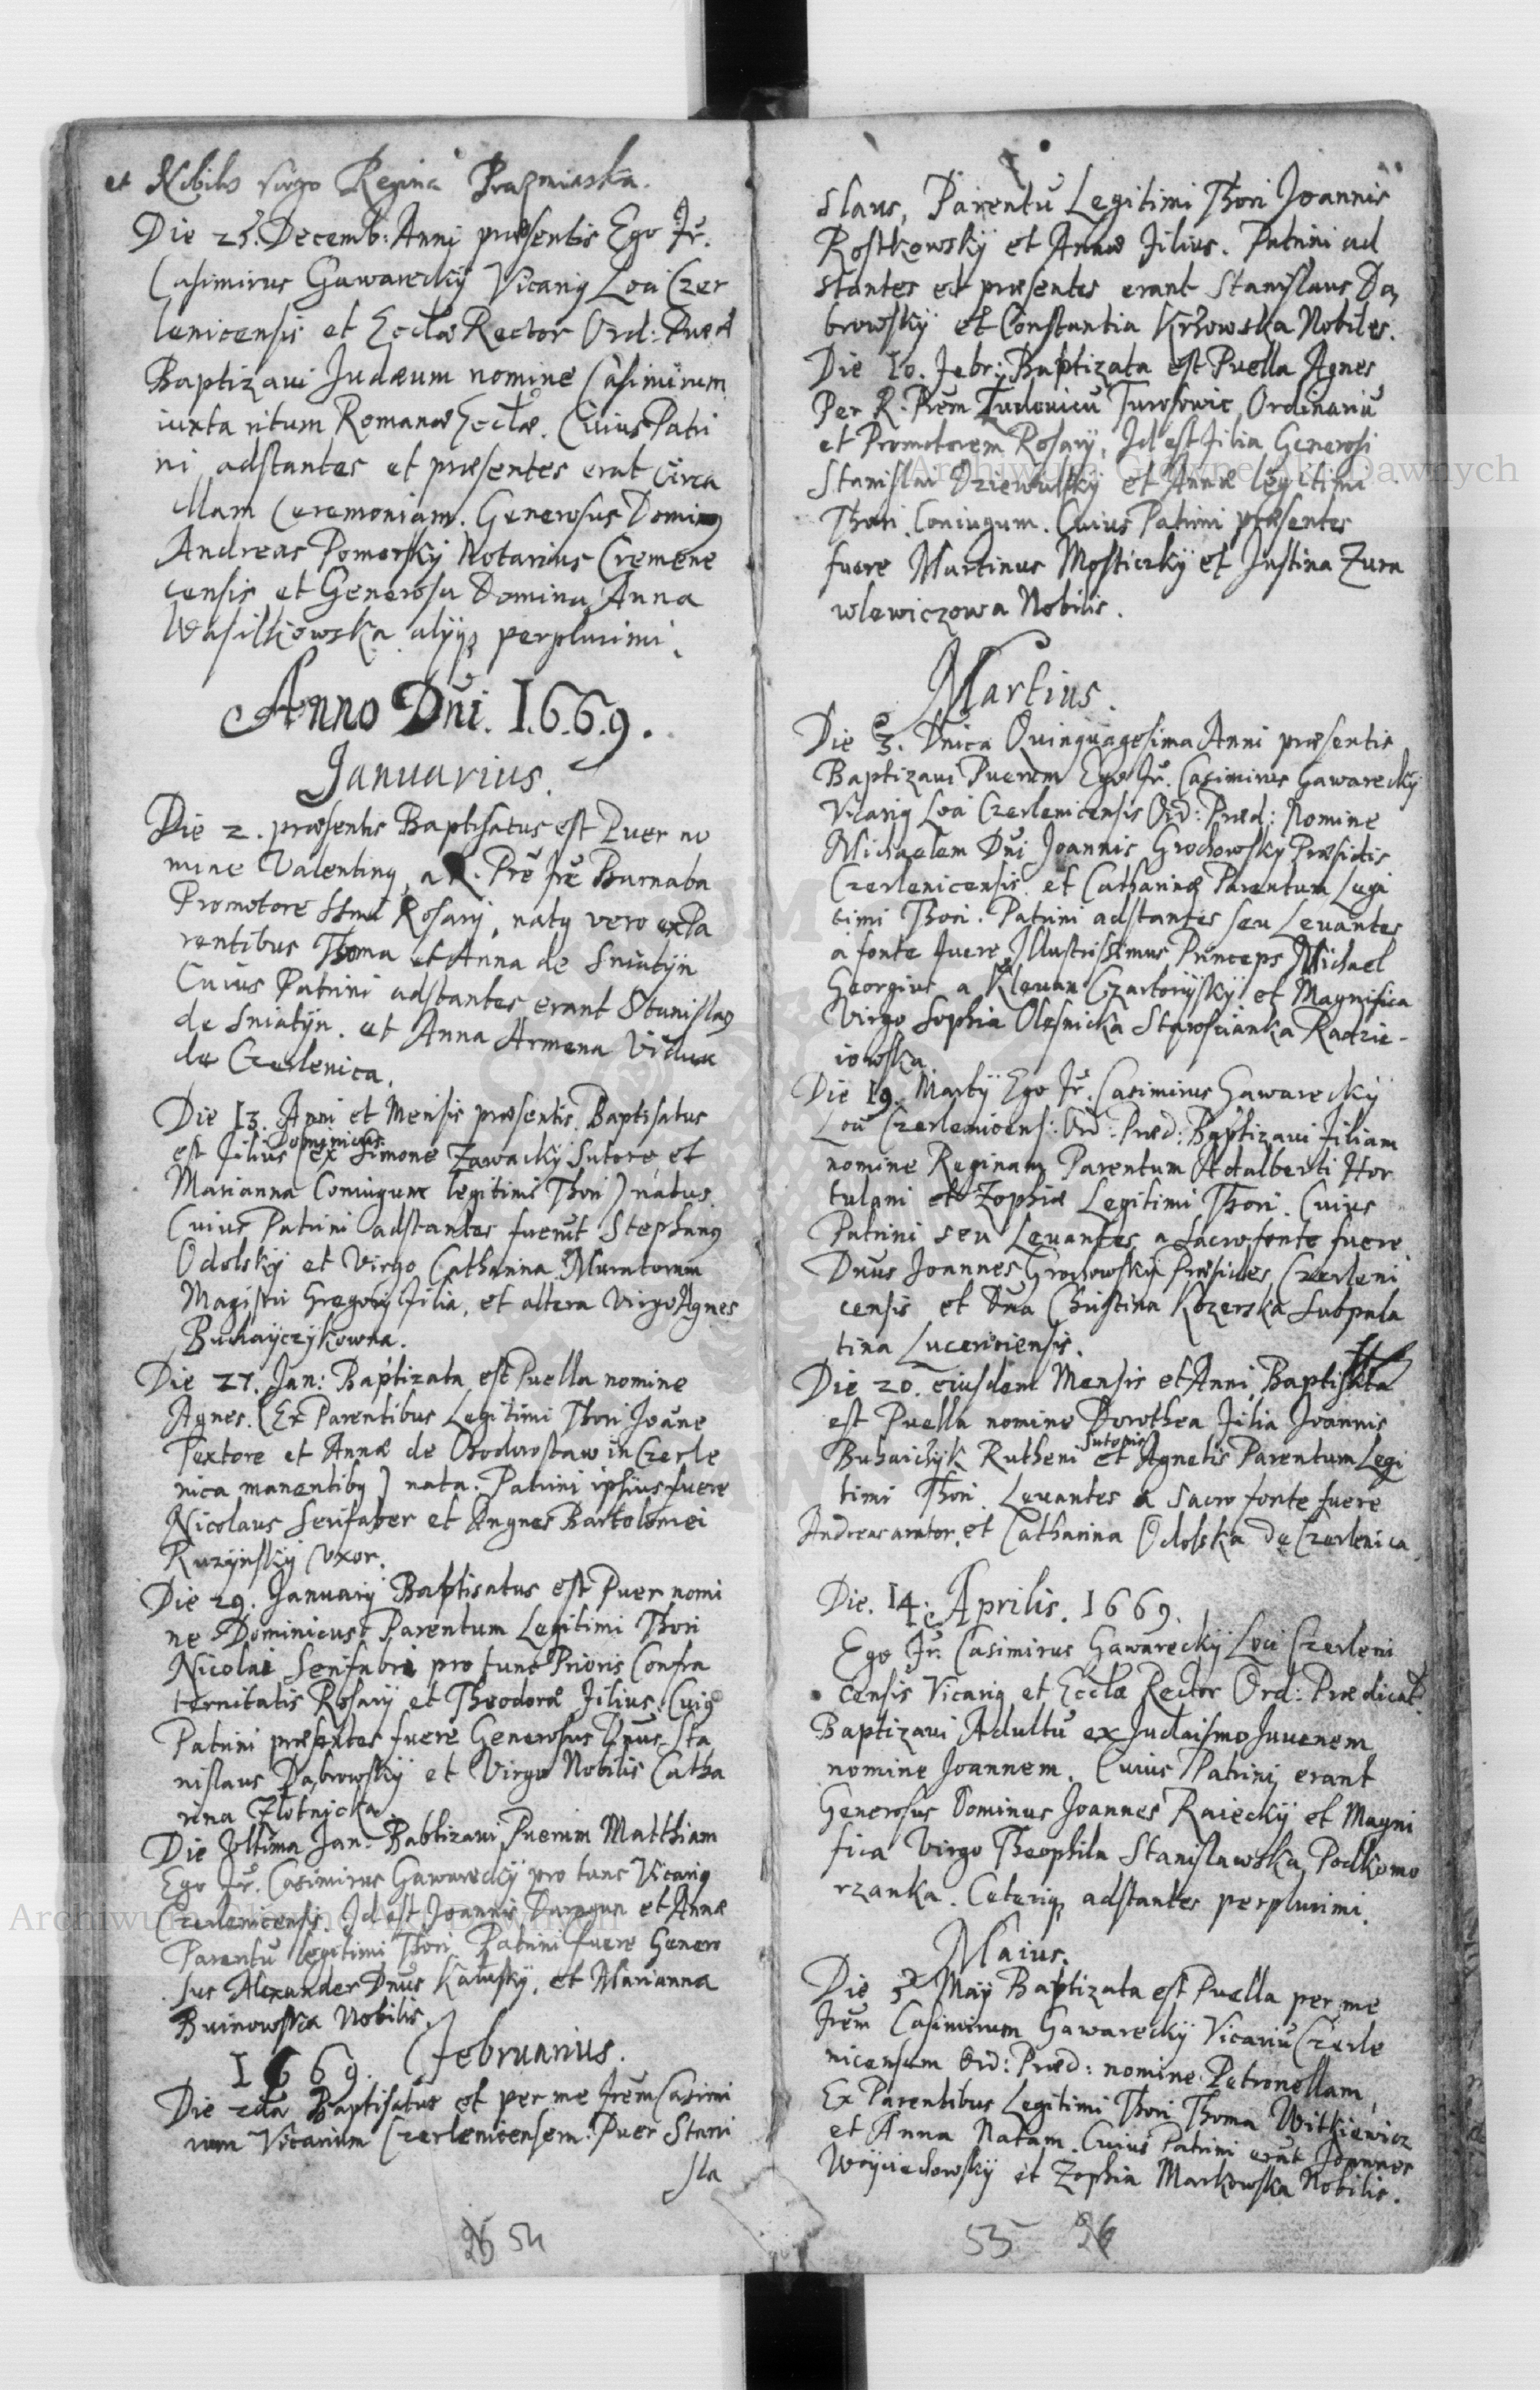 et Nobilis virgo Regina Prazmiaska.
Die 25. Decemb: Anni præsentis Ego Fr.
Casimirus Gawarecky Vicariꝰ Loci Czer
lenicensis et Ecclæ Rector Ord: Præd
Baptizavi Judæum nomine Casimirum
iuxta ritum Romanæ Ecclæ. Cuius Patri
ni adstantes et præsentes erāt circa
illam Ceremoniam. Generosus Dominꝰ
Andreas Pomorsky Notarius Cremene
censis et Generosa Domina Anna
Wasilkowska alyqꝫ perplurimi.
Anno Dñi. 1.6.6.9.
Januarius.
Die 2. præsentis Baptisatus est Puer no
mine Valentinꝰ, a R. Prē Frē Barnaba
Promotore SSmi Rosarij, natꝰ vero ex Pa
rentibus Thoma et Anna de Sniatÿn
Cuius Patrini adstantes erant Stanislaꝰ
de Sniatÿn. et Anna Armena Vidua
de Czerlenica.
Die 13. Anni et Mensis præsentis Baptisatus
est Filius Dominicus (ex Simone Zawacky Sutore et
Marianna Coniugum legitimi Thori) natus
Cuius Patrini adstantes fuerūt Stephanꝰ
Odolsky et Virgo Catharina Muratorum
Magistri Gregorij filia, et altera Virgo Agnes
Buhaÿczykowna.
Die 27. Jan: Baptizata est Puella nomine
Agnes. (Ex Parentibus Legitimi Thori Joāne
Textore et Annæ de Chodorostaw in Czerle
nica manentibꝰ) nata. Patrini ipsius fuere
Nicolaus Serifaber et Angnes Bartolomei
Ruzÿnsky Uxor.
Die 29. Januarij Baptisatus est Puer nomi
ne Dominicus Parentum Legitimi Thori
Nicolai Serifabri pro tunc Prioris Confra
ternitatis Rosarÿ et Theodoræ Filius. Cuiꝰ
Patrini præsentes fuere Generosus Dnus Sta
nislaus Dąbrowskÿ et Virgo Nobilis Catha
rina Złotnicka.
Die Ultima Jan: Babtizavi Puerum Matthiam
Ego Fr. Casimirus Gawarecky pro tunc Vicariꝰ
Czerlenicensis. Id est Joannis Daragan et Annæ
Parentū legitimi Thori. Patrini fuere Genero
sus Alexander Dnus Kałuskÿ, et Marianna
Buinowska Nobilis.
1669. Februarius.
Die 2da Baptisatus et per me Frēm Casimi
rum Vicarium Czerlenicensem. Puer Stani
sla
26 54
slaus, Parentū Legitimi Thori Joannis
Rostkowskÿ et Annæ Filius. Patrini ad
stantes et præsentes erant Stanislaus Dą
browskÿ et Constantia Krzowska Nobiles.
Die 10. Febr: Baptizata est Puella Agnes
Per R. Prēm Ludovicū Turosowic Ordinariū
et Promotorem Rosarÿ, Id est Filia Generosi
Stanislai Dziewulskÿ et Annæ legitimi
Thori Coniugum. Cuius Patrini præsentes
fuere Martinus Mosticzkÿ et Justina Zura
wlewiczowa Nobilis.
Martius.
Die 3. Dnica Quinquagesima Anni præsentis
Baptizavi Puerum Ego Fr. Casimirus Gawareckÿ
Vicariꝰ Loci Czerlenicensis Ord: Præd: Nomine
Michaelem Dni Joannis Grochowskÿ Præsidis
Czerlenicensis et Catharinæ Parentum Legi
timi Thori. Patrini adstantes seu Levantes
a fonte fuere Illustrissimus Princeps Michael
Georgius a Klevan Czartorÿskÿ et Magnifica
Virgo Sophia Olesnicka Starościanka Radzie-
iowska.
Die 19. Martÿ Ego Fr. Casimirus Gawareckÿ
Loci Czerlenicens: Ord: Præd: Baptizavi Filiam
nomine Reginam Parentum Adalberti Hor
tulani et Zophiæ Legitimi Thori. Cuius
Patrini seu Levantes a sacro fonte fuere
Dnus Joannes Grochowskÿ Præsides Czerleni
censis et Dna Christina Kozerska Subpala
tina Luceriensis.
Die 20. eiusdem Mensis et Anni Baptisata
est Puella nomine Dorothea Filia Joannis
Buhaichÿk Rutheni Sutoris et Agnetis Parentum Legi
timi Thori. Levantes a sacro fonte fuere
Andreas arator. et Catharina Odolska de Czerlenica
Die. 14. Aprilis. 1669.
Ego Fr. Casimirus Gawareckÿ Loci Czerleni
censis Vicariꝰ et Ecclæ Rector Ord: Prædicat.
Baptizavi Adultū ex Judaismo Juvenem
nomine Joannem. Cuius Patrini erant
Generosus Dominus Joannes Raieckÿ et Magni
fica Virgo Theophila Stanislawska Podkomo
rzanka. Ceteriqꝫ adstantes perplurimi.
Maius.
Die 3 Maÿ Baptizata est Puella per me
Frēm Casimirum Gawareckÿ Vicariū Czerle
nicensem Ord: Præd: nomine Petronellam,
Ex Parentibus Legitimi Thori Thoma Witkiewicz
et Anna Natam. Cuius Patrini erāt Joannes
Woÿciechowskÿ et Zophia Markowska Nobilis.
53 26
Archiwum Główne Akt Dawnych
Archiwum Główne Akt Dawnych